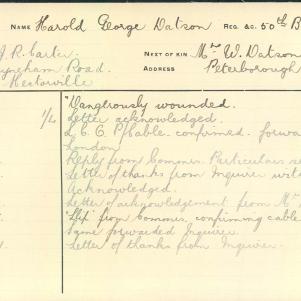 NAME Harold George Datson REG. &C. 50th B
J. R. Carter NEXT OF KIN Mr W. Datson
Road. ADDRESS Peterborough
Hectorville
"Dangerously wounded.
1/L Letter acknowledged.
L.C.C.P. Cable. confirmed. forwa
London
Reply from Commrs. Particulars re
Letter of thanks from Inquirer with
Acknowledged.
Letter of acknowledgement from Mr
"Slip" from Commrs, confirming cable
Same forwarded Inquirer.
Letter of thanks from Inquirer.